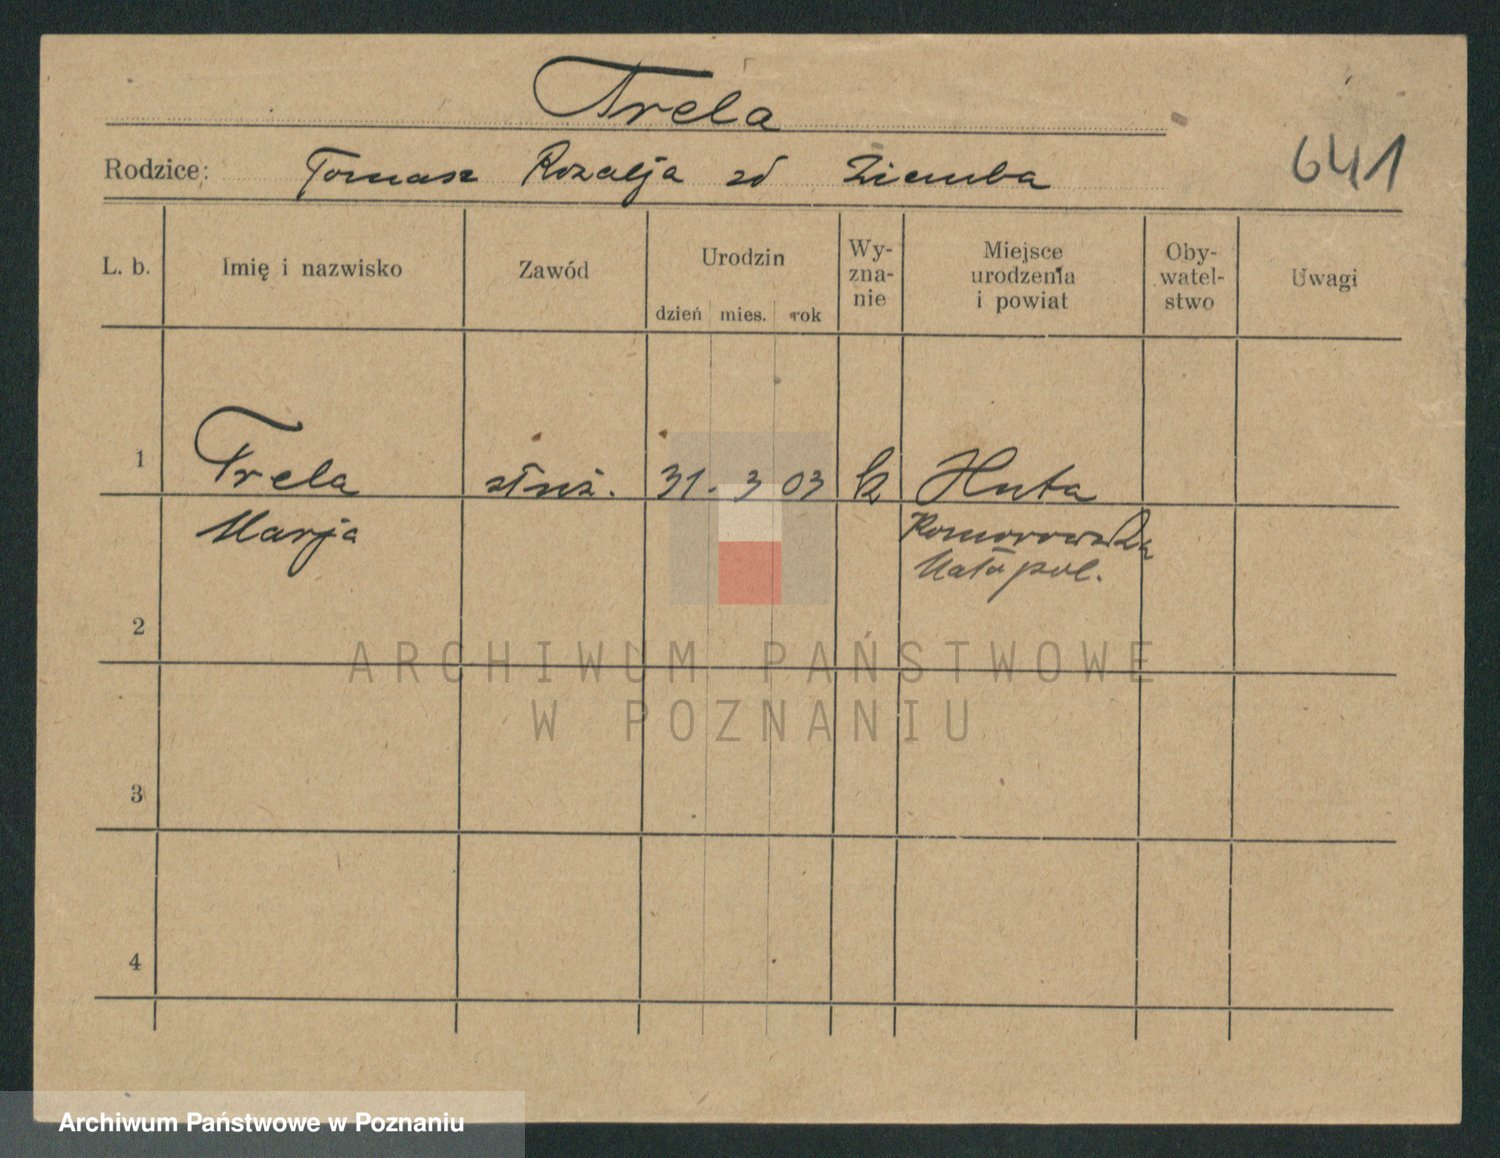 Trela
641
Rodzice: Tomasz Rozalja zd Ziemba
L. b. Imię i nazwisko Zawód Urodzin dzień mies. rok Wy-zna-nie Miejsce urodzenia i powiat Oby-watel-stwo Uwagi
1 Trela służ. 31. 3 03 k Huta
Marja Komorowska
Małopol.
2
ARCHIWUM PAŃSTWOWE
W POZNANIU
3
4
Archiwum Państwowe w Poznaniu